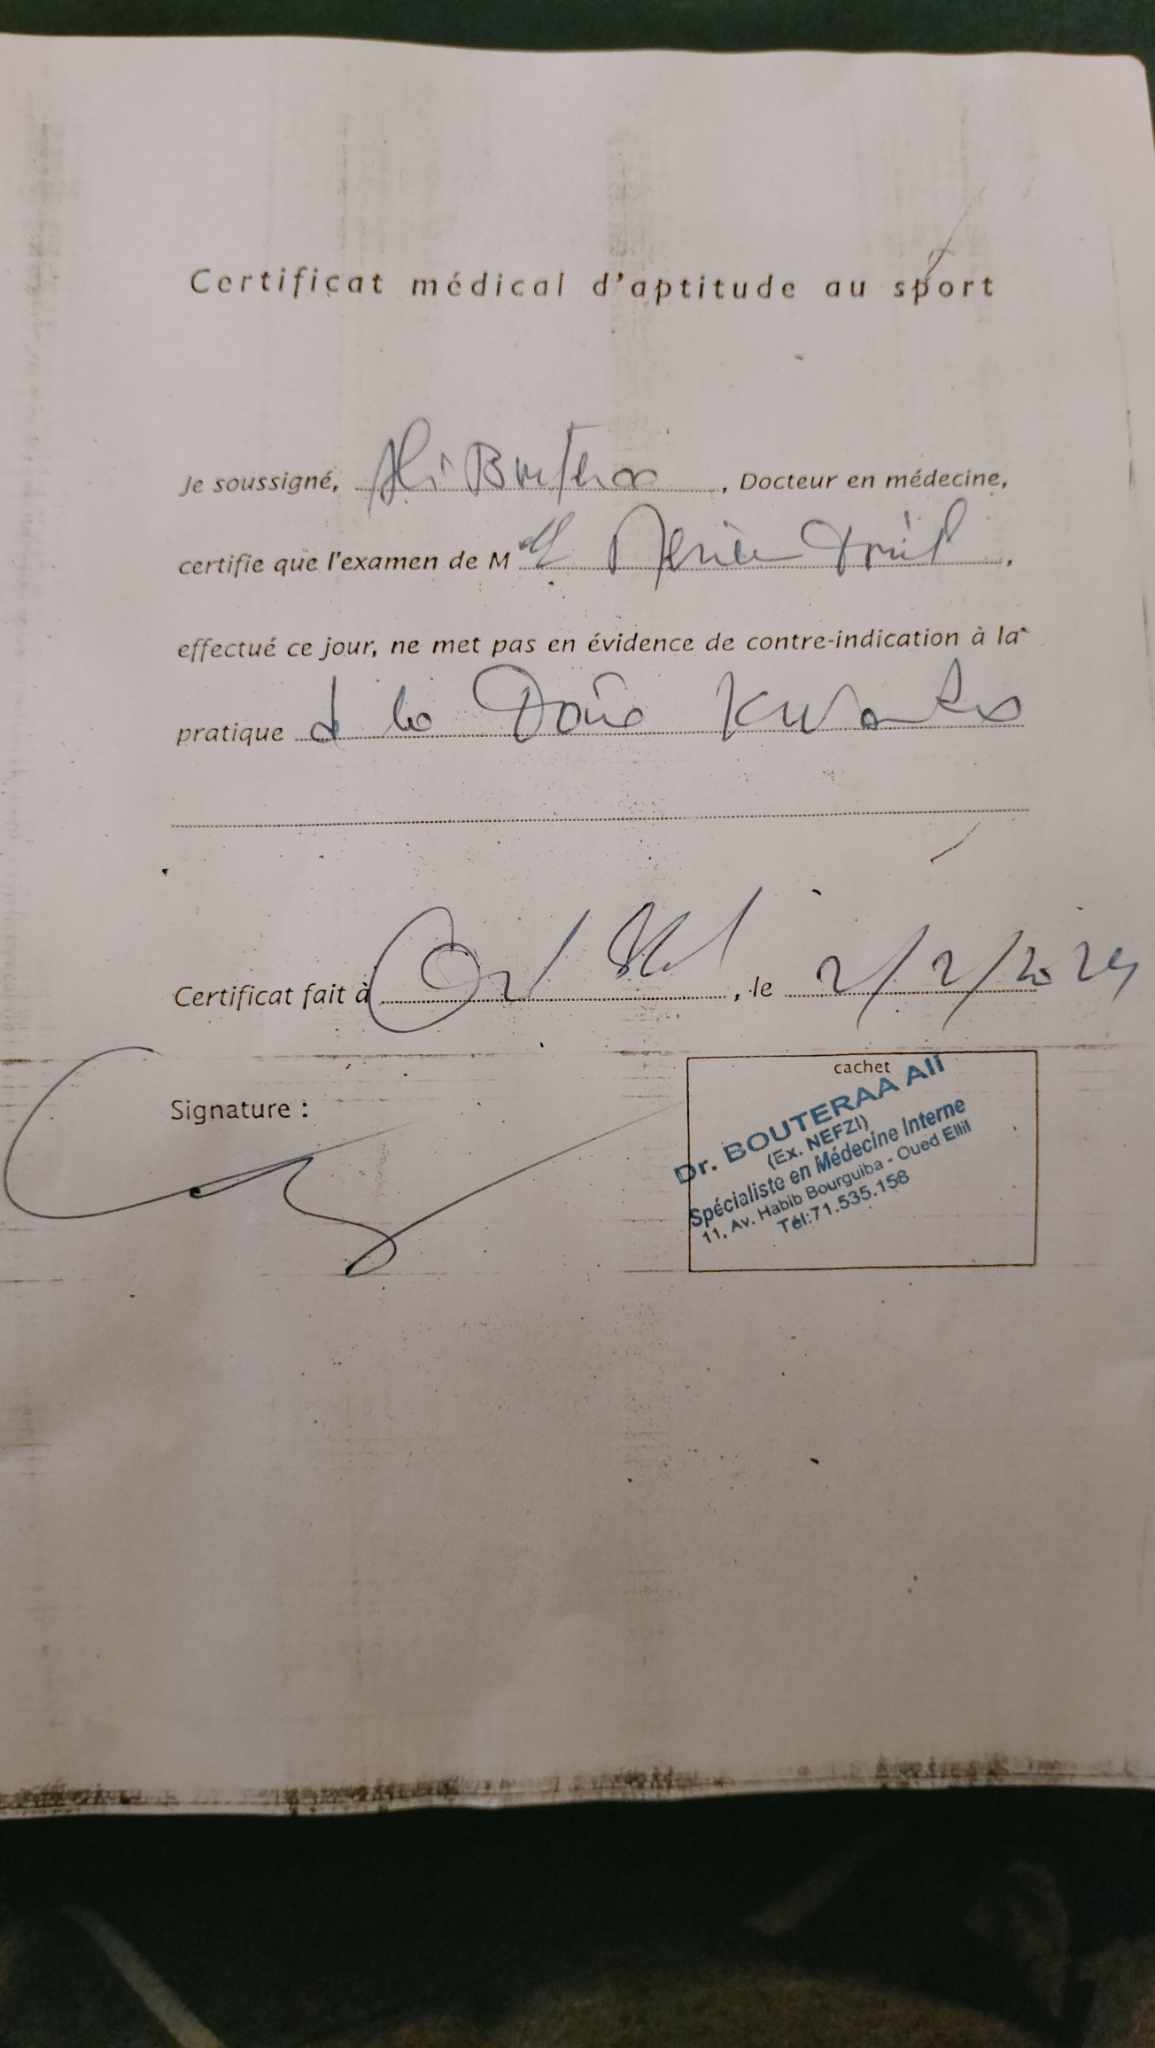 Certificat médical d'aptitude au sport
Je soussigné, Ali Bouteraa, Docteur en médecine,
certifie que l'examen de M
effectué ce jour, ne met pas en évidence de contre-indication à la
pratique
Certificat fait à Oued Ellil, le 2/2/2024
Signature :
cachet
Dr. BOUTERAA Ali
(Ex. NEFZI)
Spécialiste en Médecine Interne
11, Av. Habib Bourguiba - Oued Ellil
Tél:71.535.158